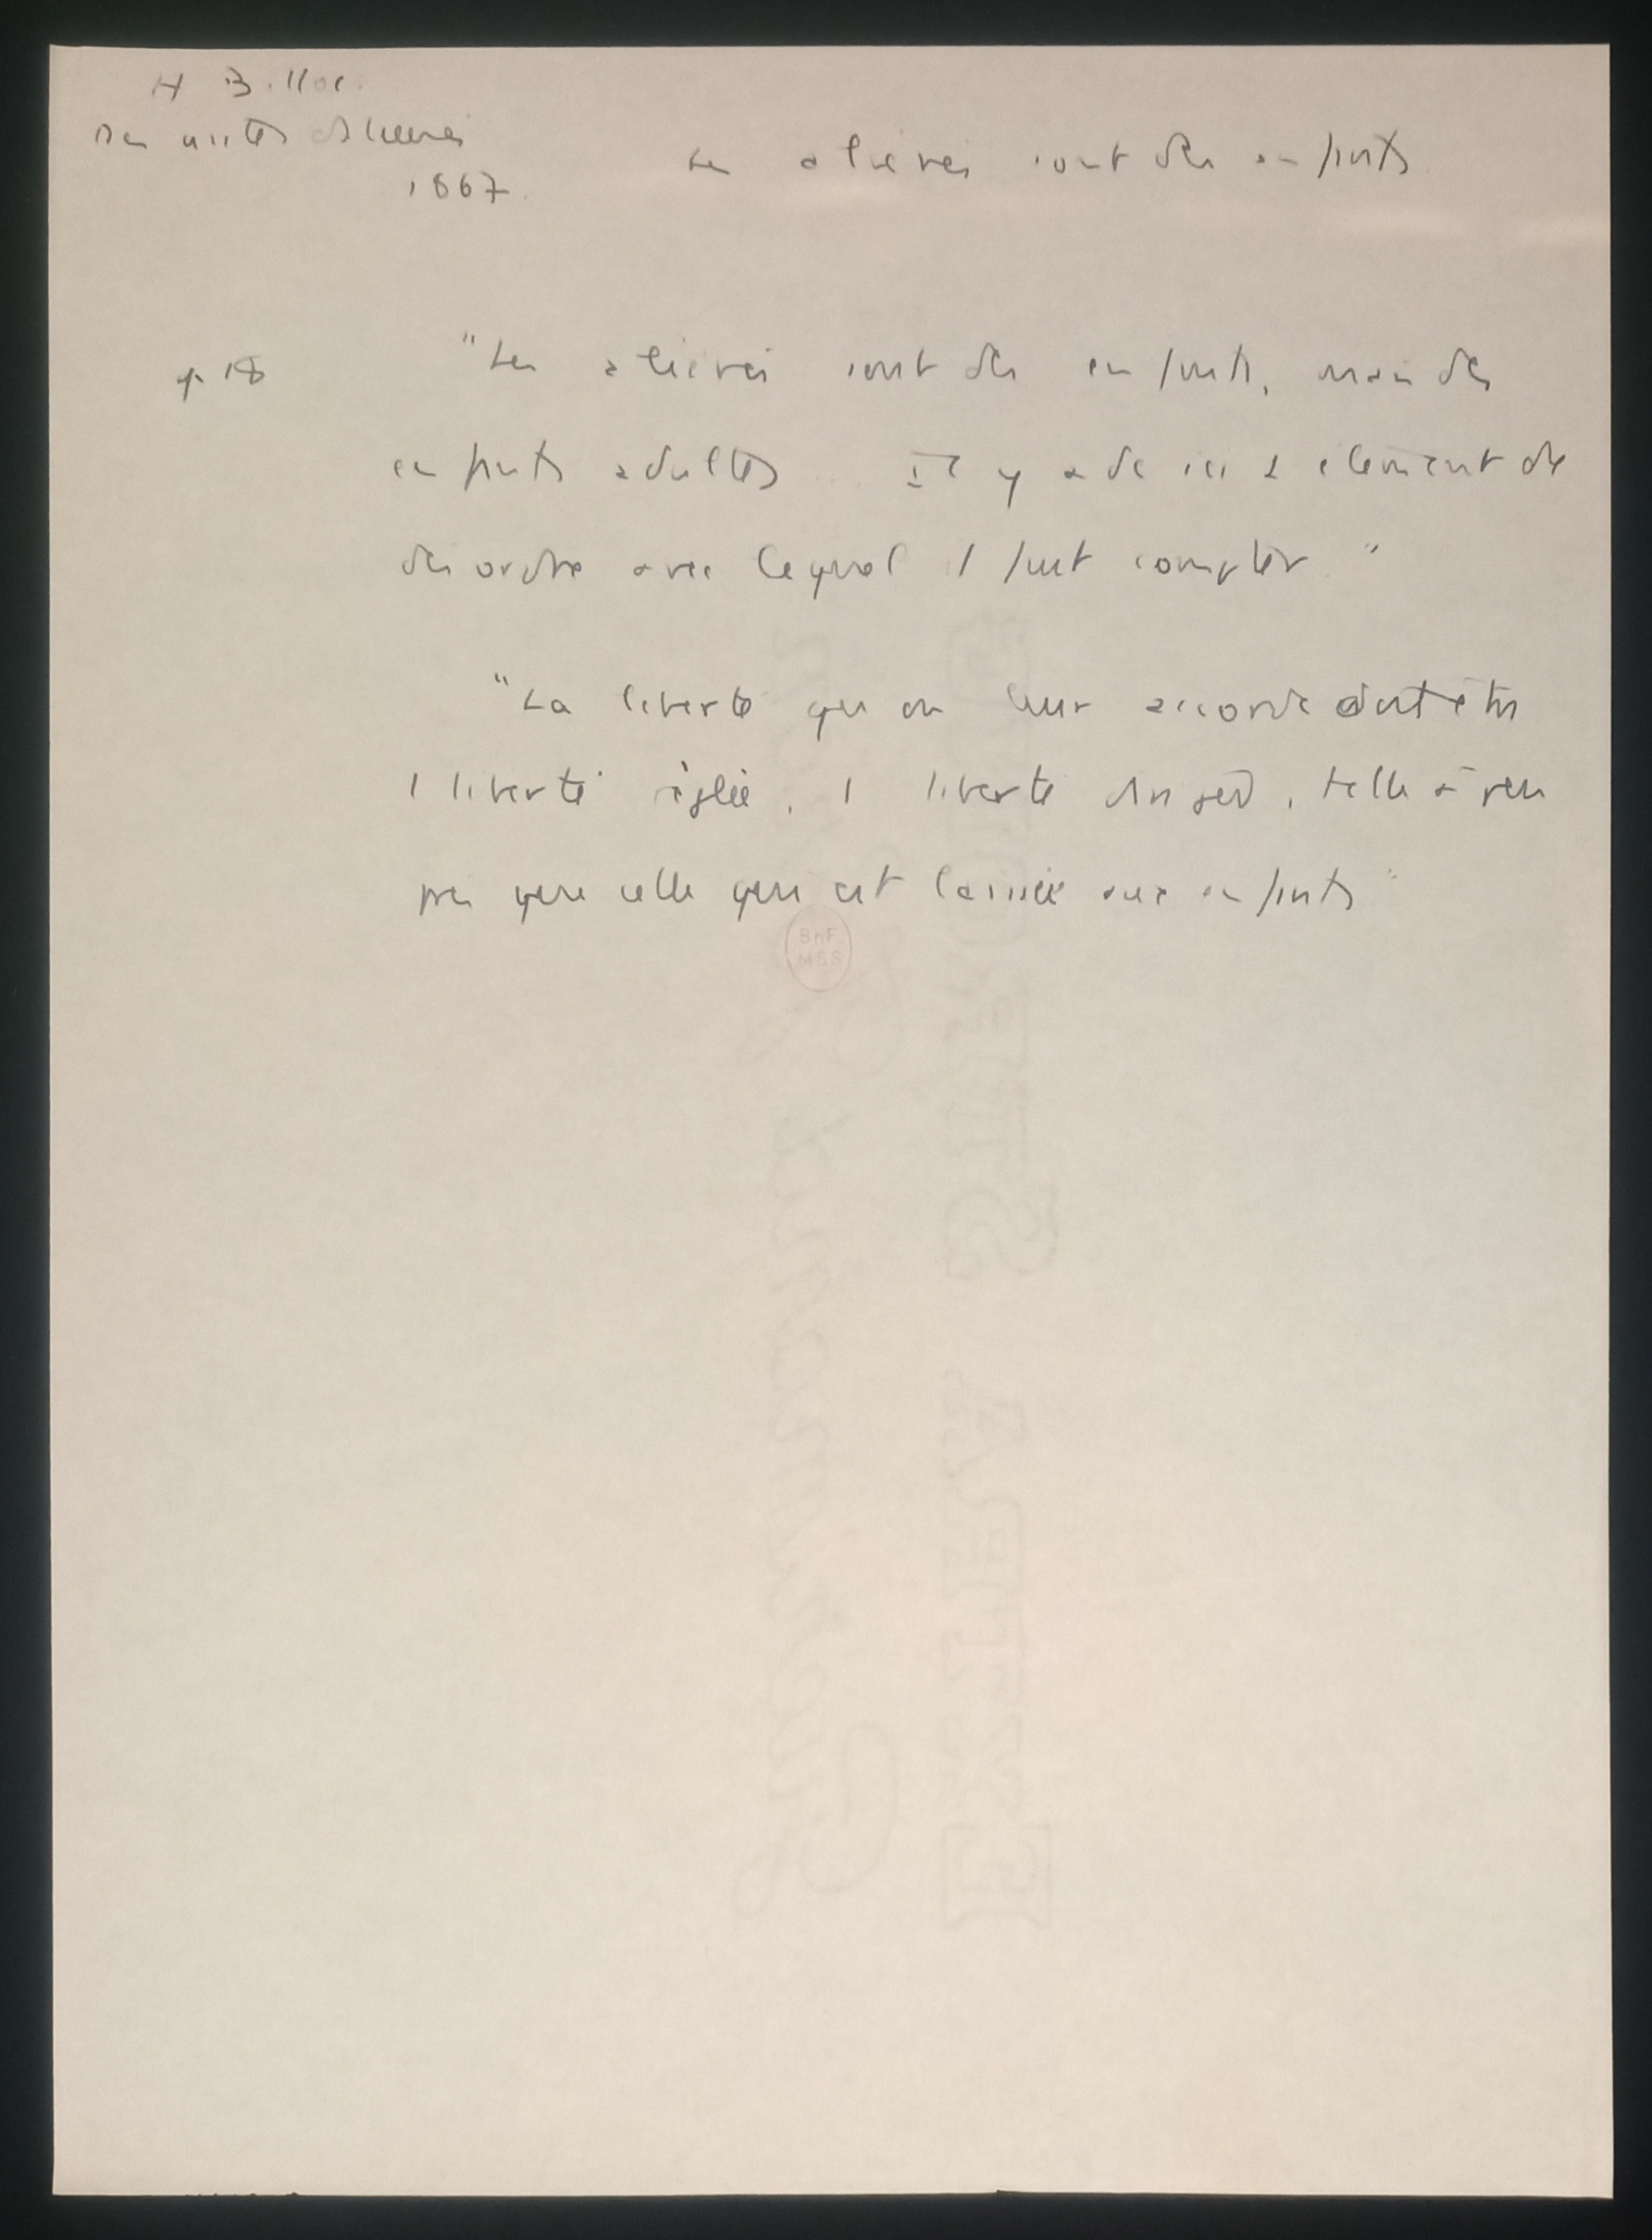 H B.
Des asiles d'aliénés
1867.
Les aliénés sont des enfants
p. 18
"Les aliénés sont des enfants, mais des
enfants adultes... Il y a de ici 1 élément de
désordre avec lequel il faut compter"
"La liberté qu'on leur accorde doit être
1 liberté réglée, 1 liberté dirigée, telle à peu
près que celle qui est laissée aux enfants"
BnF
MSS